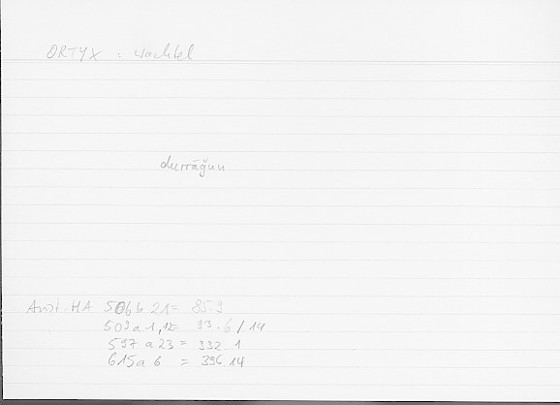 ORTYX : Wachtel
durrāǧun
Arist. HA 506b 21 = 85.9
509a1,12 = 93.6/14
597a23 = 332.1
615a6 = 396.14